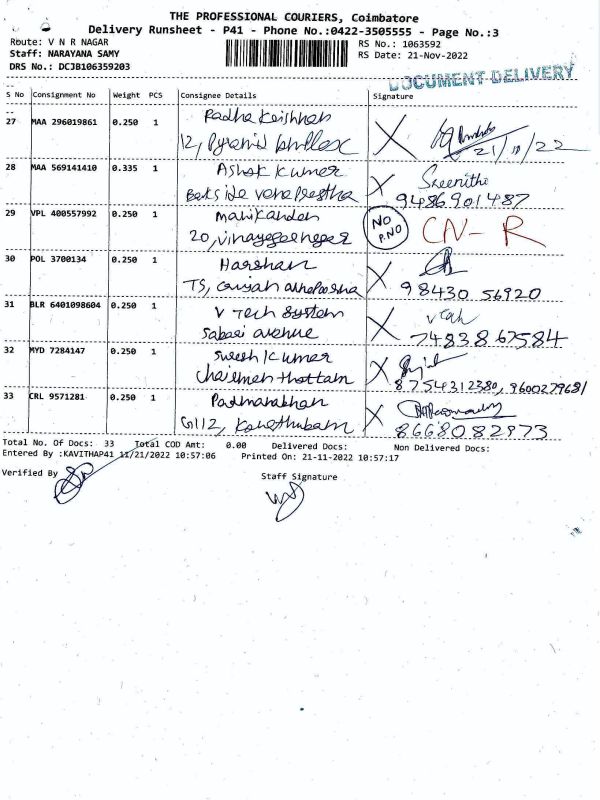 THE PROFESSIONAL COURIERS, Coimbatore
Delivery Runsheet - P41 - Phone No.:0422-3505555 - Page No.:3
Route: V N R NAGAR
RS No.: 1063592
Staff: NARAYANA SAMY
RS Date: 21-Nov-2022
DRS No.: DCJB106359203
DOCUMENT DELIVERY
S No Consignment No Weight PCS Consignee Details Signature
27 MAA 296019861 0.250 1 Radha Krishnan
12, Pyramid 21/11/22
28 MAA 569141410 0.335 1 Ashok Kumar Sreenithi
9486901487
29 VPL 400557992 0.250 1 Manikandan NO P.NO CN- R
20, Vinayagar nagar
30 POL 3700134 0.250 1 Harshan
T5, 98430 56920
31 BLR 6401098604 0.250 1 V Tech System
Sabari avenue 7483867584
32 MYD 7284147 0.250 1 Suresh Kumar
Chairman thottam 8754312380, 9600279681
33 CRL 9571281 0.250 1 Padmanabhan
G112, 8668082973
Total No. Of Docs: 33 Total COD Amt: 0.00 Delivered Docs: Non Delivered Docs:
Entered By :KAVITHAP41 11/21/2022 10:57:06 Printed On: 21-11-2022 10:57:17
Verified By
Staff Signature